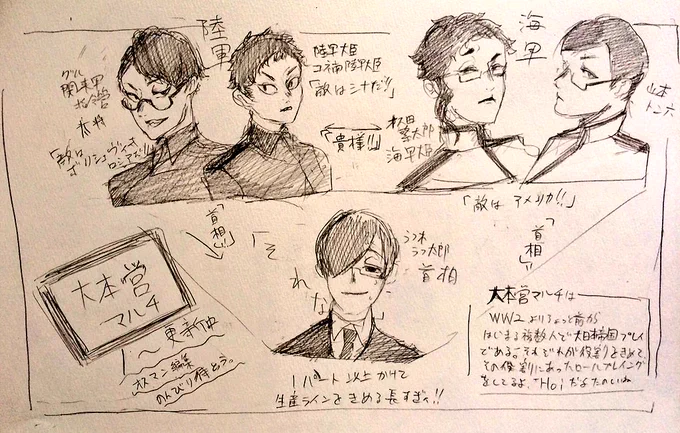 陸軍
海軍
グル
関東軍
大将
陸軍大臣
コネ南陸軍大臣
「敵はシナだ!!」
「貴様!!」
海軍大臣
山本
「敵はアメリカ!!」
「首相!!」
「首相!!」
「それな」
うつ太郎
首相
大本営
マルチ
〜更新中
オスマン編集
のんびり待とう。
1パート以上かけて
生産ラインをきめる長すぎィ!!
大本営マルチは
WW2よりちょっと前から
はじまる複数人で大日本帝国プレイ
である。それぞれが役割をきめて
その役割にあったロールプレイング
をしてるよ。HoIだよたのしいね